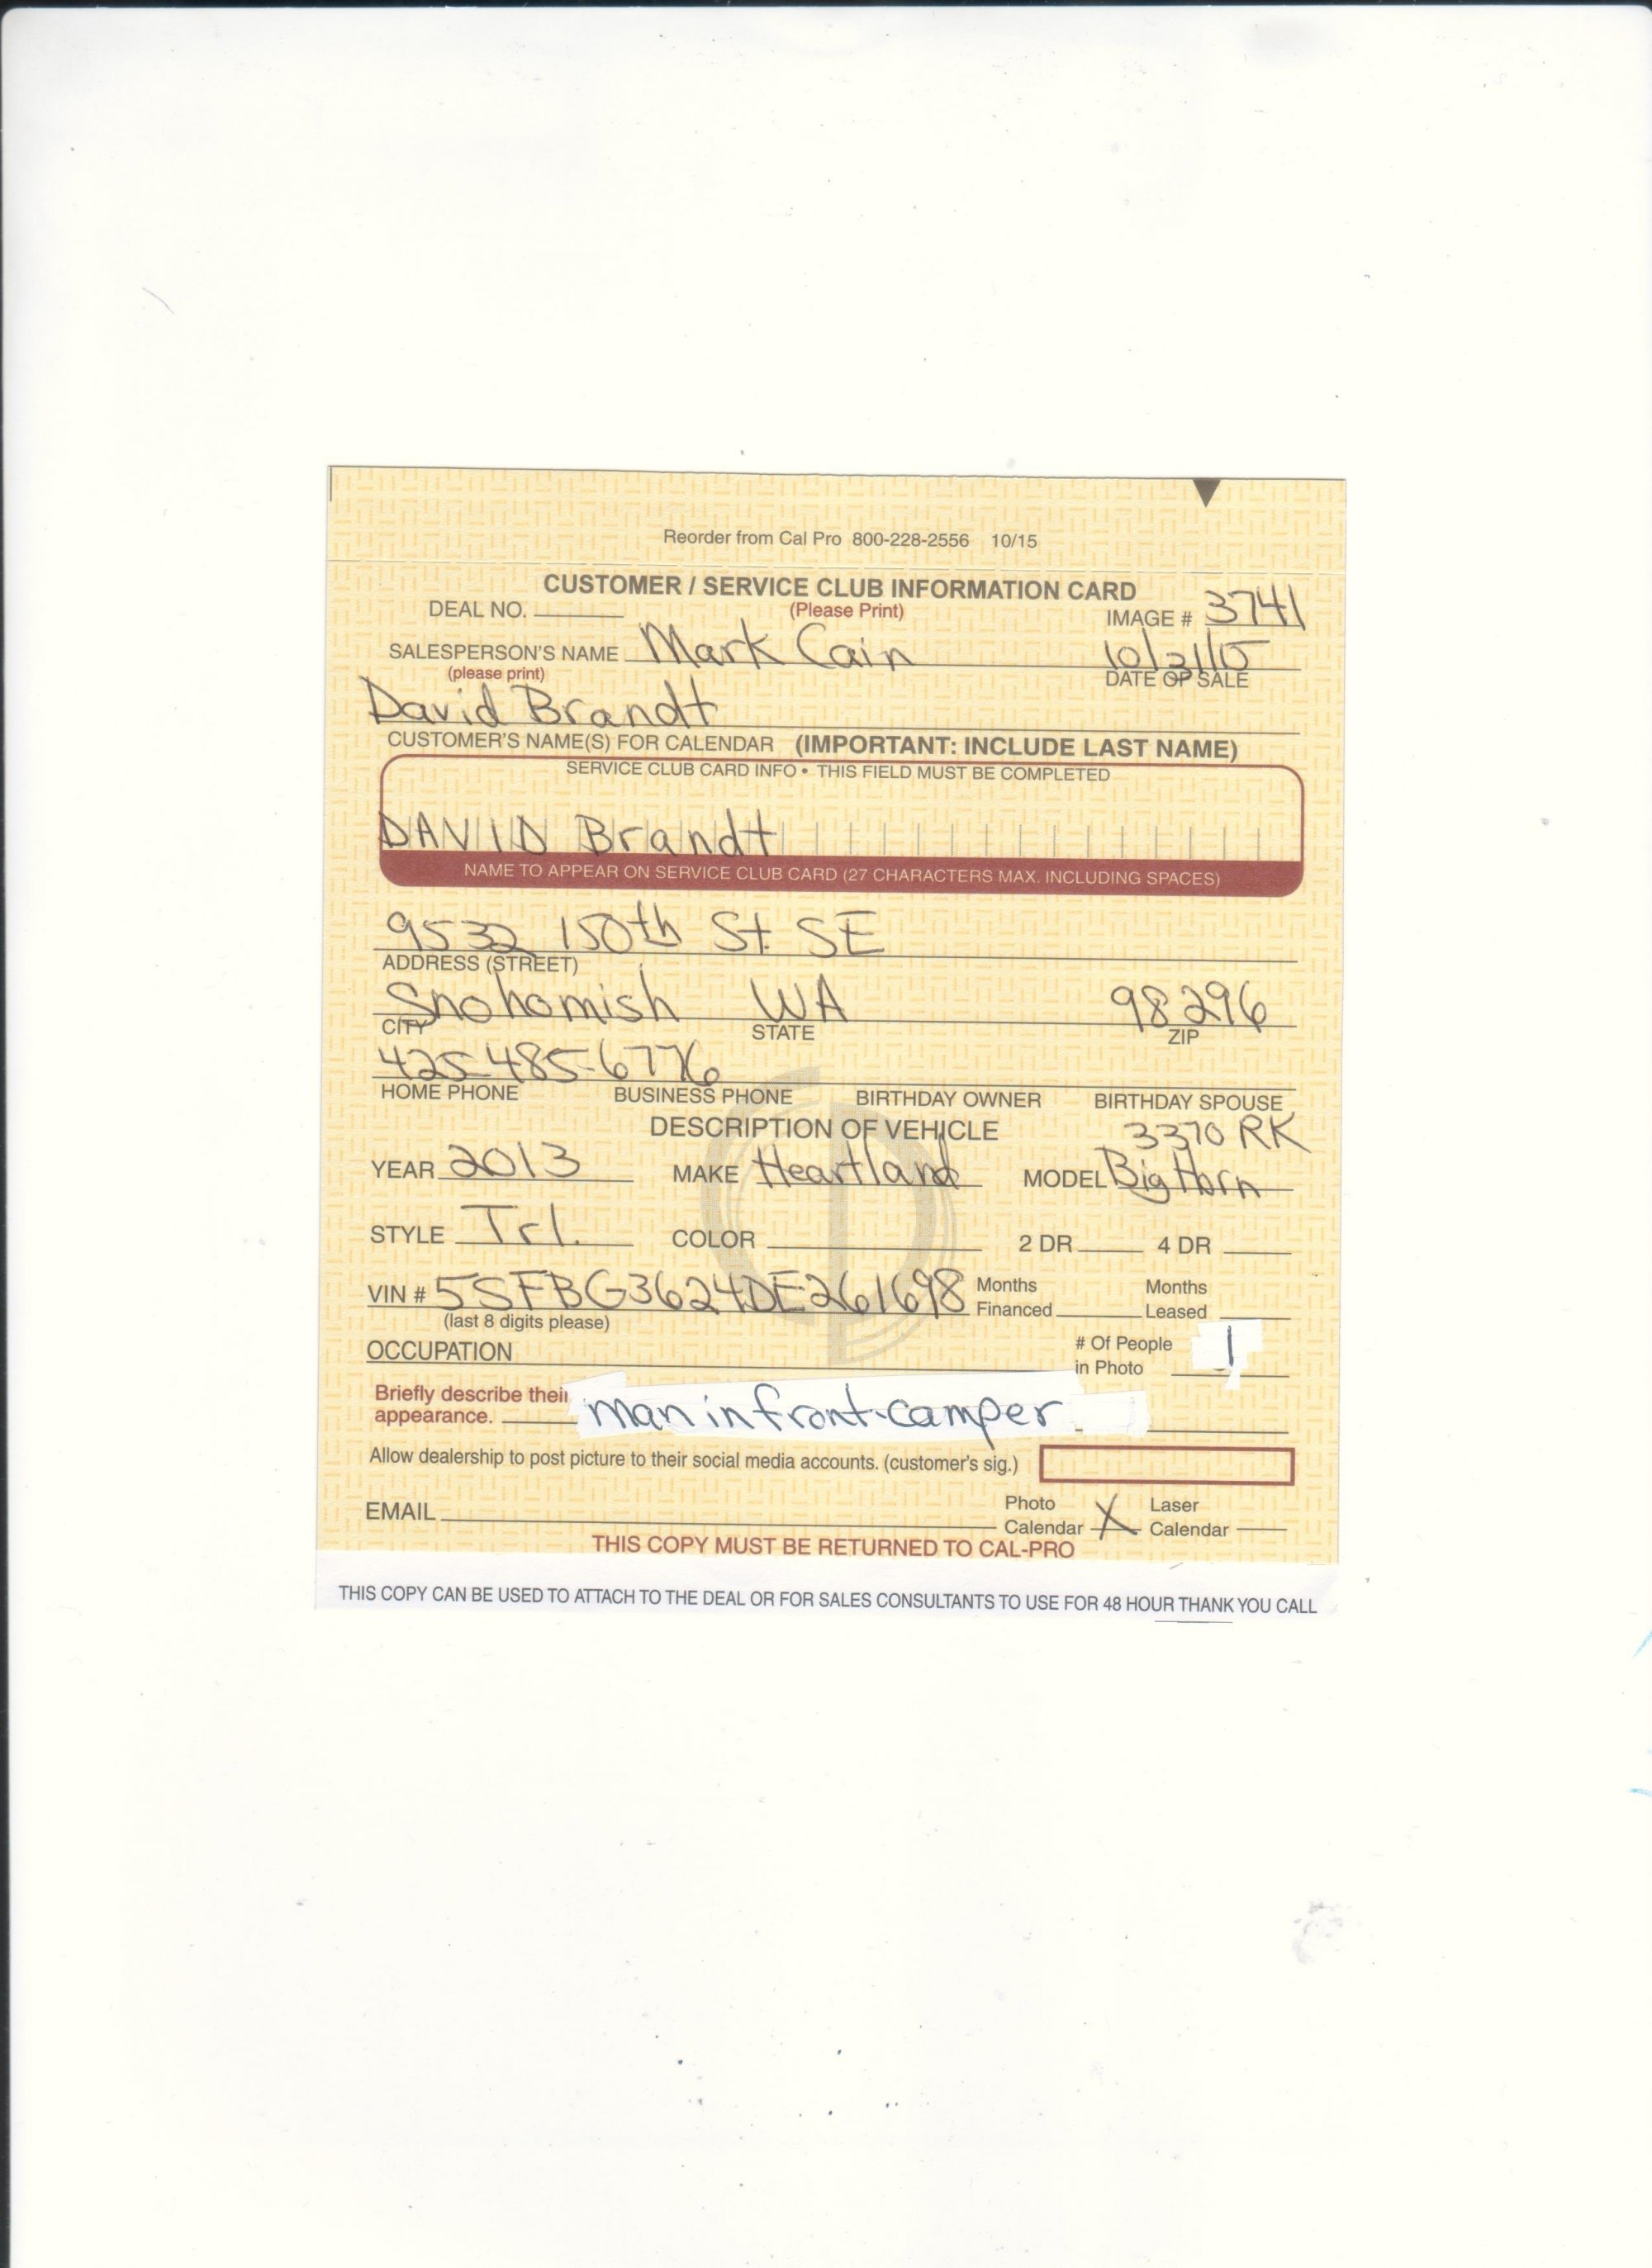 Reorder from Cal Pro 800-228-2556 10/15
CUSTOMER / SERVICE CLUB INFORMATION CARD
DEAL NO. (Please Print) IMAGE # 3741
SALESPERSON'S NAME Mark Cain 10/31/15
(please print) DATE OF SALE
David Brandt
CUSTOMER'S NAME(S) FOR CALENDAR (IMPORTANT: INCLUDE LAST NAME)
SERVICE CLUB CARD INFO • THIS FIELD MUST BE COMPLETED
DAVID Brandt
NAME TO APPEAR ON SERVICE CLUB CARD (27 CHARACTERS MAX. INCLUDING SPACES)
9532 150th St SE
ADDRESS (STREET)
Snohomish WA 98296
CITY STATE ZIP
425-485-6776
HOME PHONE BUSINESS PHONE BIRTHDAY OWNER BIRTHDAY SPOUSE
DESCRIPTION OF VEHICLE 3370 RK
YEAR 2013 MAKE Heartland MODEL Big Horn
STYLE Trl. COLOR 2 DR 4 DR
VIN # 5SFBG3624DE261698 Months Financed Months Leased
(last 8 digits please)
OCCUPATION # Of People in Photo 1
Briefly describe their
appearance. man in front-camper
Allow dealership to post picture to their social media accounts. (customer's sig.)
EMAIL Photo Calendar X Laser Calendar
THIS COPY MUST BE RETURNED TO CAL-PRO
THIS COPY CAN BE USED TO ATTACH TO THE DEAL OR FOR SALES CONSULTANTS TO USE FOR 48 HOUR THANK YOU CALL